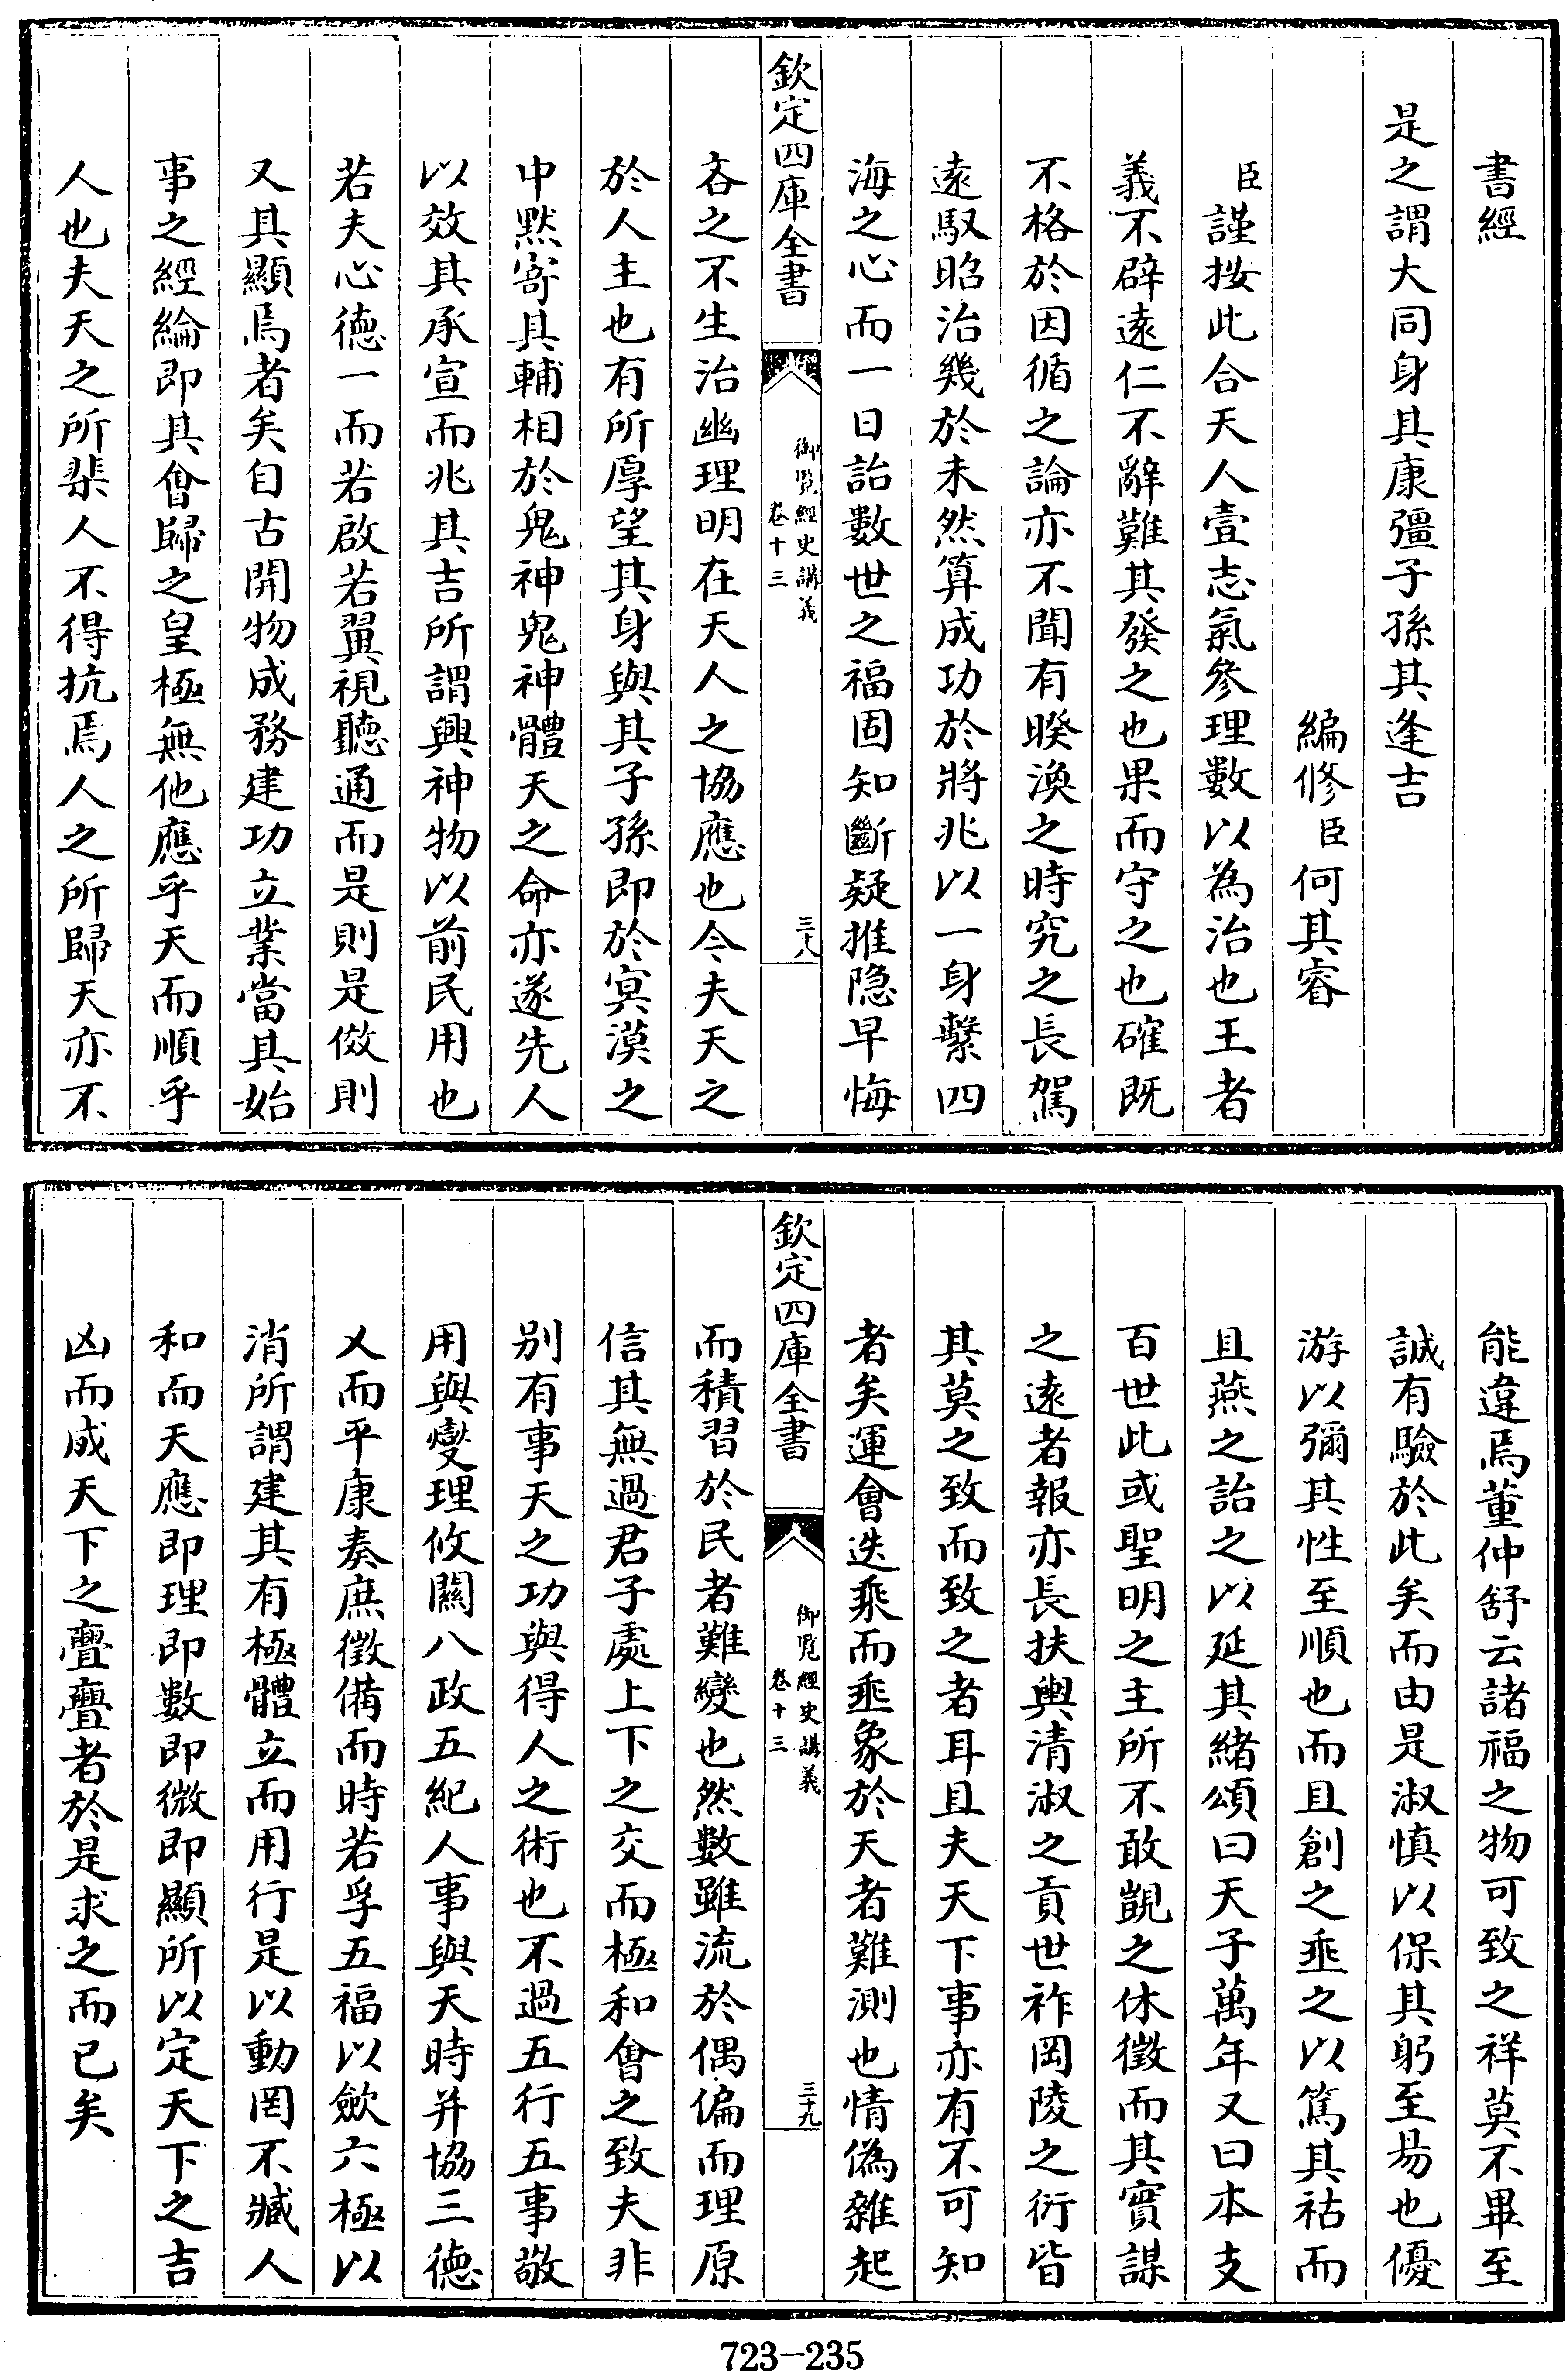 書經
是之謂大同身其康彊子孫其逢吉
編修臣何其睿
臣謹按此合天人壹志氣參理數以為治也王者
義不辟遠仁不辭難其發之也果而守之也確既
不格於因循之論亦不聞有睽渙之時究之長駕
遠馭昭治幾於未然算成功於將兆以一身繫四
海之心而一日詒數世之福固知斷疑推隠早悔
欽定四庫全書
御覽經史講義
卷十三
三十八
吝之不生治幽理明在天人之協應也今夫天之
於人主也有所厚望其身與其子孫即於冥漠之
中黙寄其輔相於鬼神鬼神體天之命亦遂先人
以效其承宣而兆其吉所謂興神物以前民用也
若夫心徳一而若啟若翼視聽通而是則是傚則
又其顯焉者矣自古開物成務建功立業當其始
事之經綸即其會歸之皇極無他應乎天而順乎
人也夫天之所棐人不得抗焉人之所歸天亦不
能違焉董仲舒云諸福之物可致之祥莫不畢至
誠有驗於此矣而由是淑慎以保其躬至易也優
游以彌其性至順也而且創之垂之以篤其祜而
且燕之詒之以延其緒頌曰天子萬年又曰本支
百世此或聖明之主所不敢覬之休徵而其實謀
之遠者報亦長扶輿清淑之貢世祚岡陵之衍皆
其莫之致而致之者耳且夫天下事亦有不可知
者矣運會迭乘而垂象於天者難測也情偽雜起
欽定四庫全書
御覽經史講義
卷十三
三十九
而積習於民者難變也然數雖流於偶偏而理原
信其無過君子處上下之交而極和會之致夫非
别有事天之功與得人之術也不過五行五事敬
用與燮理攸關八政五紀人事與天時并協三徳
乂而平康奏庶徵備而時若孚五福以歛六極以
消所謂建其有極體立而用行是以動罔不臧人
和而天應即理即數即微即顯所以定天下之吉
凶而成天下之亹亹者於是求之而已矣
723-235